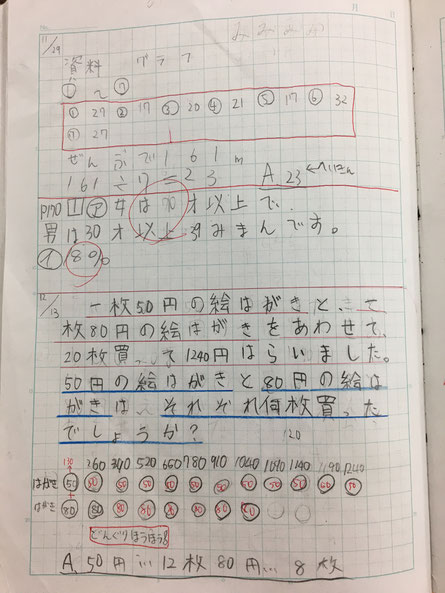 11/29
資料 グラフ
① ~ ⑦
① 27 ② 17 ③ 20 ④ 21 ⑤ 17 ⑥ 32
⑦ 27
ぜんぶで161m
161÷7=23 A 23 ←へいきん
P110 1 ア 女は70才以上で、
男は30才以上39みまんです。
イ 80%
12/13 一枚50円の絵はがきと、
枚80円の絵はがきをあわせて、
20枚買って1240円はらいました。
50円の絵はがきと80円の絵は
がきは、それぞれ何枚買った
でしょうか?
120
130 260 390 520 650 780 910 1040 1090 1140 1190 1240
はがき 50 50 50 50 50 50 50 50 50 50 50 50
はがき 80 80 80 80 80 80 80 80
どんぐりほうほう
A、50円…12枚 80円…8枚